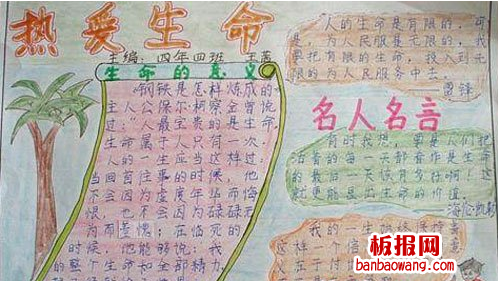 热爱生命
主编：四年四班
生命的意义
"钢铁是怎样炼成的
主人公保尔柯察金曾说
过："人最宝贵的是生命，
生命属于人只有一次。
人的一生应当这样过：
当回首往事的时候，他
不会因为虚度年华而悔
恨，也不会因为碌碌无
为而羞愧；在临死的
时候，他能够说：我
的整个生命和全部精力
"人的生命是有限的，可
是，为人民服是无限的，我
要把有限的生命，投入到无
限的为人民服务中去。
——雷锋
名人名言
有时我想，要是人们把
活着的每一天都看作是生命
的最后一天该有多好啊！这
就更能显出生命的价值。
海伦·凯勒
我的一生始终保持着
这样一个信
人在于付
板报网
banbaowang.com